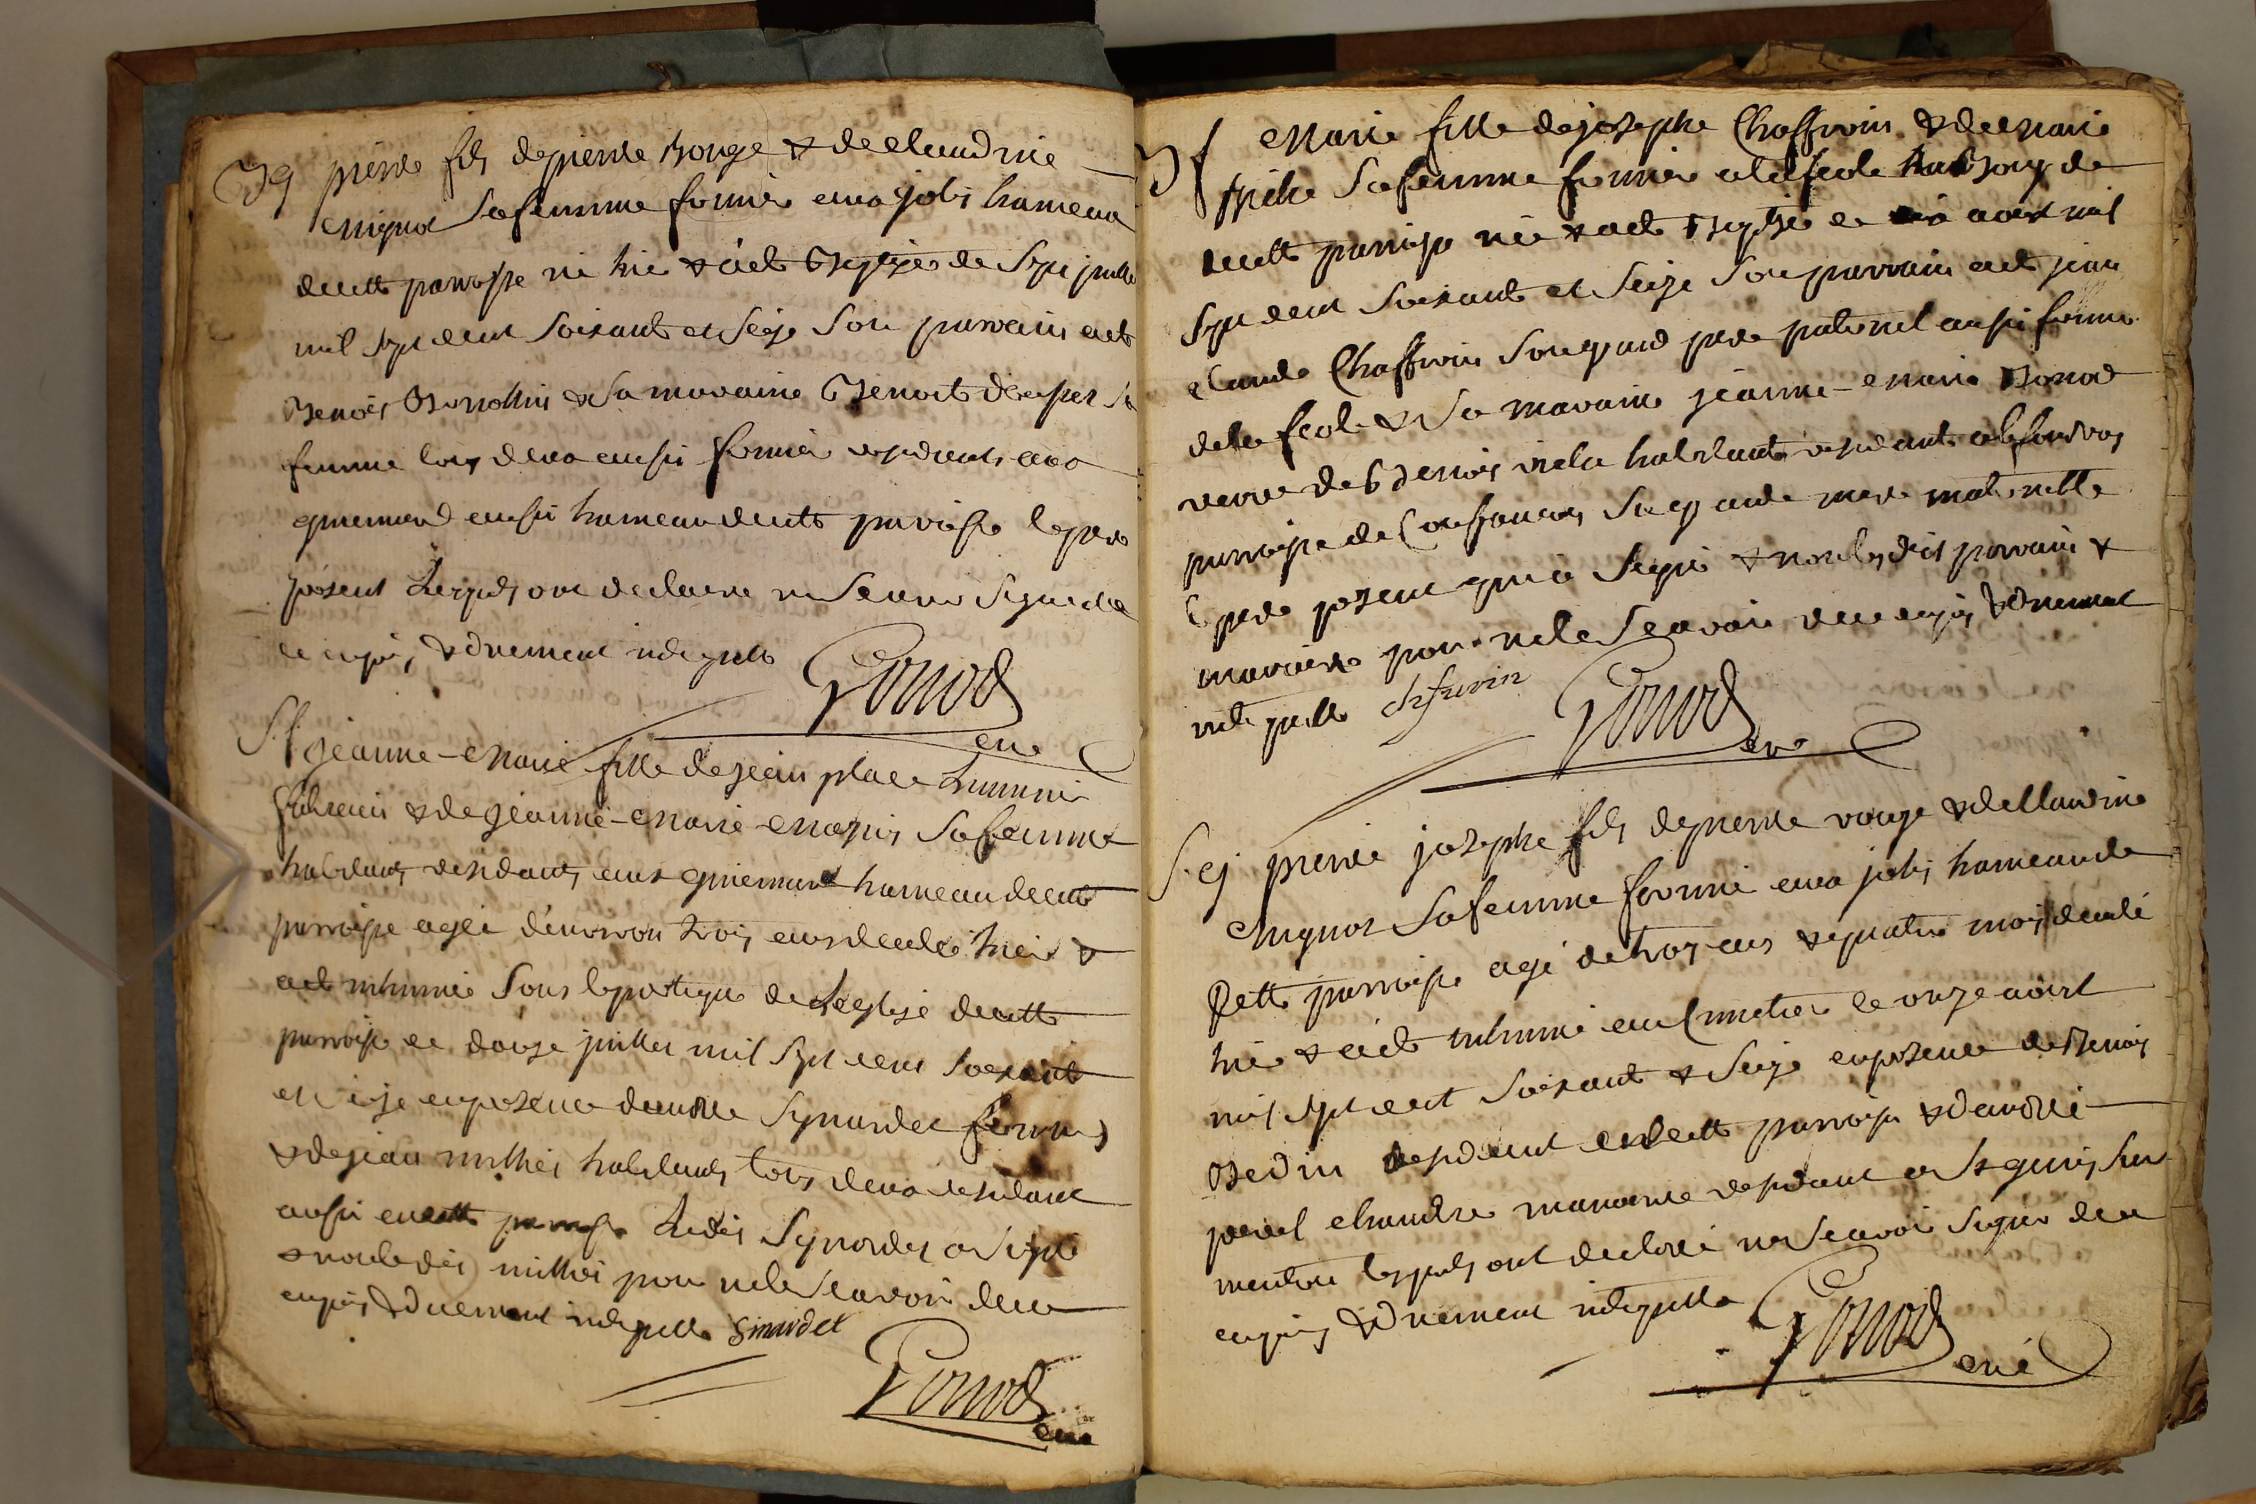 Bg pierre fils de pierre Bouge & de claudine
mignot sa femme fermier aux jolis hameau
de cette parroisse né hier & a été Baptisé le sept juillet
mil sept cent soixante et seize son parrain a été
Benoit & sa marraine Benoite sa
femme tous deux aussi fermier residents aux
guiemard aussi hameau de cette parroisse le pere
présent Lesquels ont déclaré ne scavoir signer de
ce enquis, & dnement interpellé Gonod
curé
S.f jeanne-Marie fille de jean place
& de jeanne-Marie sa femme
habitants residants aux guiemard hameau de cette
parroisse agée d'environ trois ans decedée hier &
a été inhumée sous le portique de L'eglise de cette
parroisse le douze juillet mil sept cent soixante
et seize en presence d'andré Synardet fermier
& de jean milliet habitants tous deux residant
aussi en cette parroisse Ledit Synardet a signé
& non ledit milliet pour ne le scavoir de ce
enquis & duement interpellé Sinardet
Gonod
curé
Bf Marie fille de josephe Chaffrion & de marie
sa femme fermier a la feole
de cette parroisse née & a été Baptisée le août mil
sept cent soixante et seize son parrain a été jean
claude Chaffrion son grand pere paternel aussi fermier
de la feole & sa maraine jeanne-marie Bonod
veuve de Benoit viela habitante residante
parroisse de Confrançon sa grande mere maternelle
le pere present qui a signé & non lesdits parrain &
maraine pour ne le scavoir de ce enquis & duement
interpellé chafruion Gonod
curé
S.g pierre josephe fils de pierre rouge & de Claudine
mignot sa femme fermier aux jolis hameau de
Cette parroisse agé de trois ans & quatre mois decedé
hier & a été inhumé au Cimetier le onze août
mil sept cent soixante & seize en presence de Benoit
Bedin residant en cette parroisse & d'andré
perret chandre manoeuvre residant a
lesquels ont declaré ne scavoir signer de ce
enquis & duement interpellé Gonod
curé